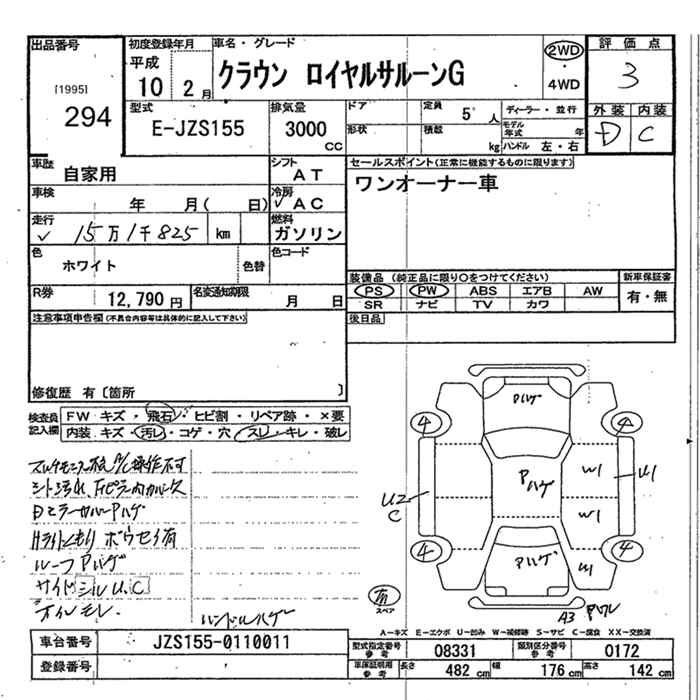 出品番号
[1995]
294
初度登録年月
平成
10 2月
車名・グレード
クラウン ロイヤルサルーンG
2WD
・
4WD
評価点
3
型式
E-JZS155
排気量
3000
CC
ドア
形状
定員
5人
積載
kg
ディーラー・並行
モデル年式 年
ハンドル 左・右
外装 内装
D C
車歴
自家用
シフト
AT
車検
年 月( 日)
冷房
✓AC
走行
✓ 15万1千825 km
燃料
ガソリン
色
ホワイト
色替
色コード
R券
12,790円
名変通知期限
月 日
セールスポイント(正常に機能するものに限ります)
ワンオーナー車
装備品(純正品に限り○をつけてください)
PS PW ABS エアB AW
SR ナビ TV カワ
新車保証書
有・無
後日品
注意事項申告欄(不具合内容等は具体的に記入して下さい)
修復歴 有〔箇所 〕
検査員記入欄
FW キズ・飛石・ヒビ割・リペア跡・×要
内装 キズ・汚レ・コゲ・穴・スレ・キレ・破レ
操作不可
Dミラーカバー Pハゲ
Hライトくもり ボウセイ有
ルーフ Pハゲ
サイドシル U.C
オイルモレ.
ハンドルハゲ
Pハゲ
4
4
Pハゲ
W1
U1
W1
U2
C
4
4
Pハゲ
U1
有
スペア
A3
A-キズ E-エクボ U-凹み W-補修跡 S-サビ C-腐食 XX-交換済
車台番号
JZS155-0110011
登録番号
型式指定番号 参考
08331
類別区分番号 参考
0172
車庫証明用 参考
長さ 482 cm
幅 176 cm
高さ 142 cm